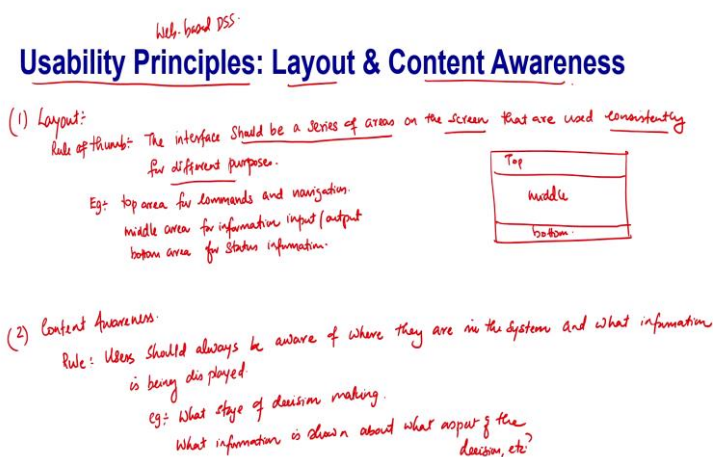 Web-based DSS.
Usability Principles: Layout & Content Awareness
(1) Layout:-
Rule of thumb:- The interface should be a series of areas on the screen that are used consistently
for different purposes.
Top
middle
bottom.
Eg:- top area for commands and navigation.
middle area for information input/output
bottom area for status information.
(2) Content Awareness.
Rule:- Users should always be aware of where they are in the system and what information
is being displayed.
eg:- What stage of decision making.
What information is shown about what aspect of the
decision, etc?